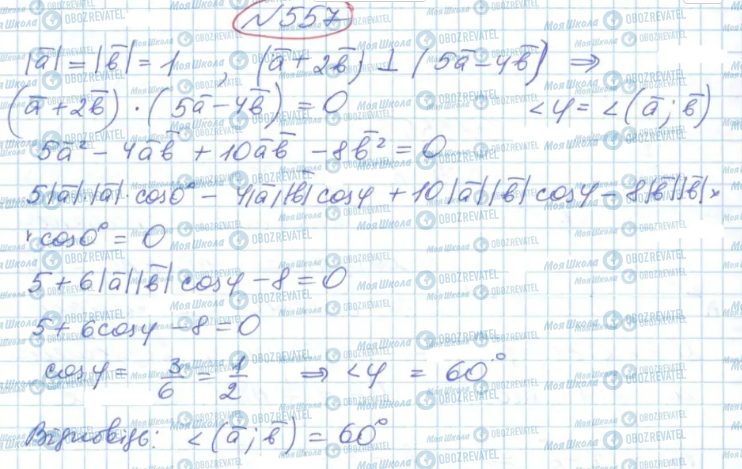 №557
|a̅| = |b̅| = 1 , (a̅ + 2b̅) ⊥ (5a̅ - 4b̅) ⇒
(a̅ + 2b̅) · (5a̅ - 4b̅) = 0 ∠φ = ∠(a̅; b̅)
5a̅² - 4a̅b̅ + 10a̅b̅ - 8b̅² = 0
5|a̅|·|a̅|·cos0° - 4|a̅||b̅|cosφ + 10|a̅||b̅|cosφ - 8|b̅||b̅|×
× cos0° = 0
5 + 6|a̅||b̅|cosφ - 8 = 0
5 + 6cosφ - 8 = 0
cosφ = 3/6 = 1/2 ⇒ ∠φ = 60°
Відповідь: ∠(a̅; b̅) = 60°
Моя Школа OBOZREVATEL